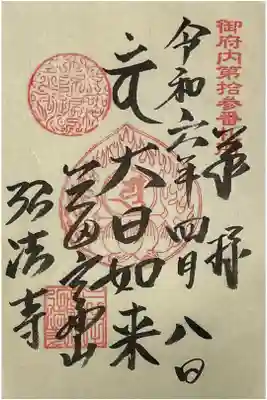 御府内第拾参番
奉拝
令和六年四月八日
大日如来
三田高野山
弘法寺